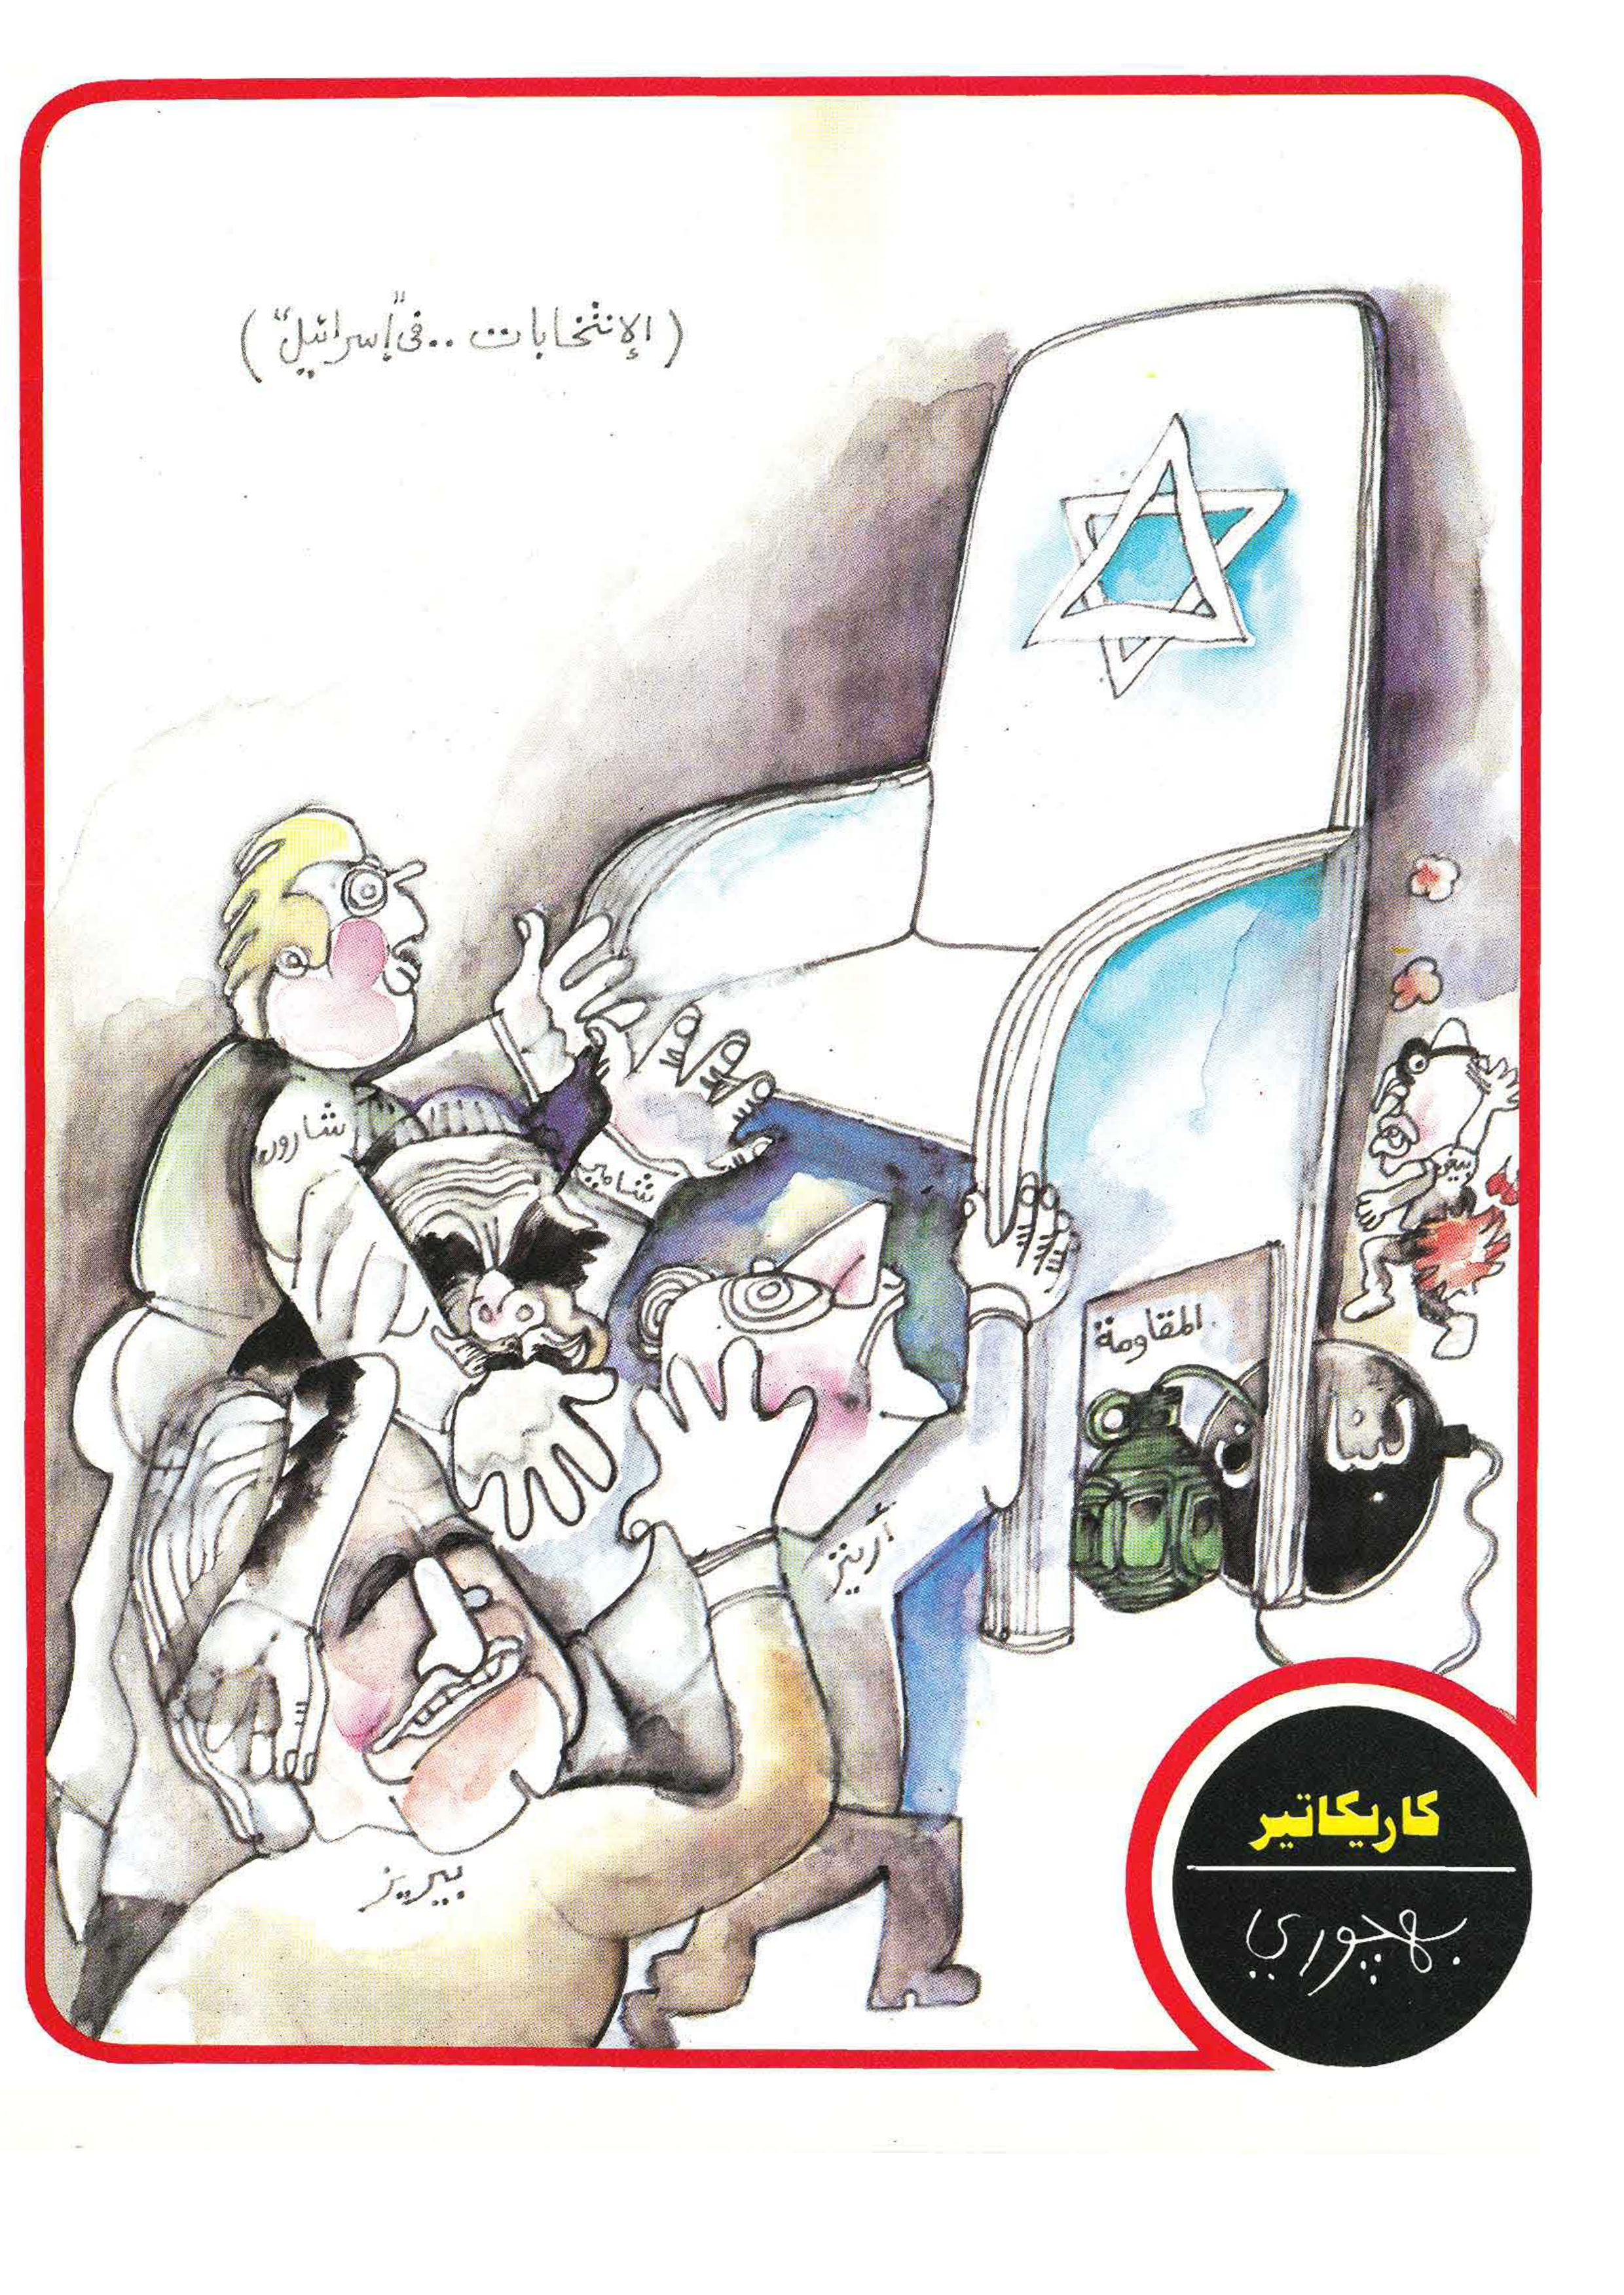 (الإنتخابات .. في "إسرائيل")
شارون
شامير
بيغن
المقاومة
أرينز
بيريز
كاريكاتير
بهجوري